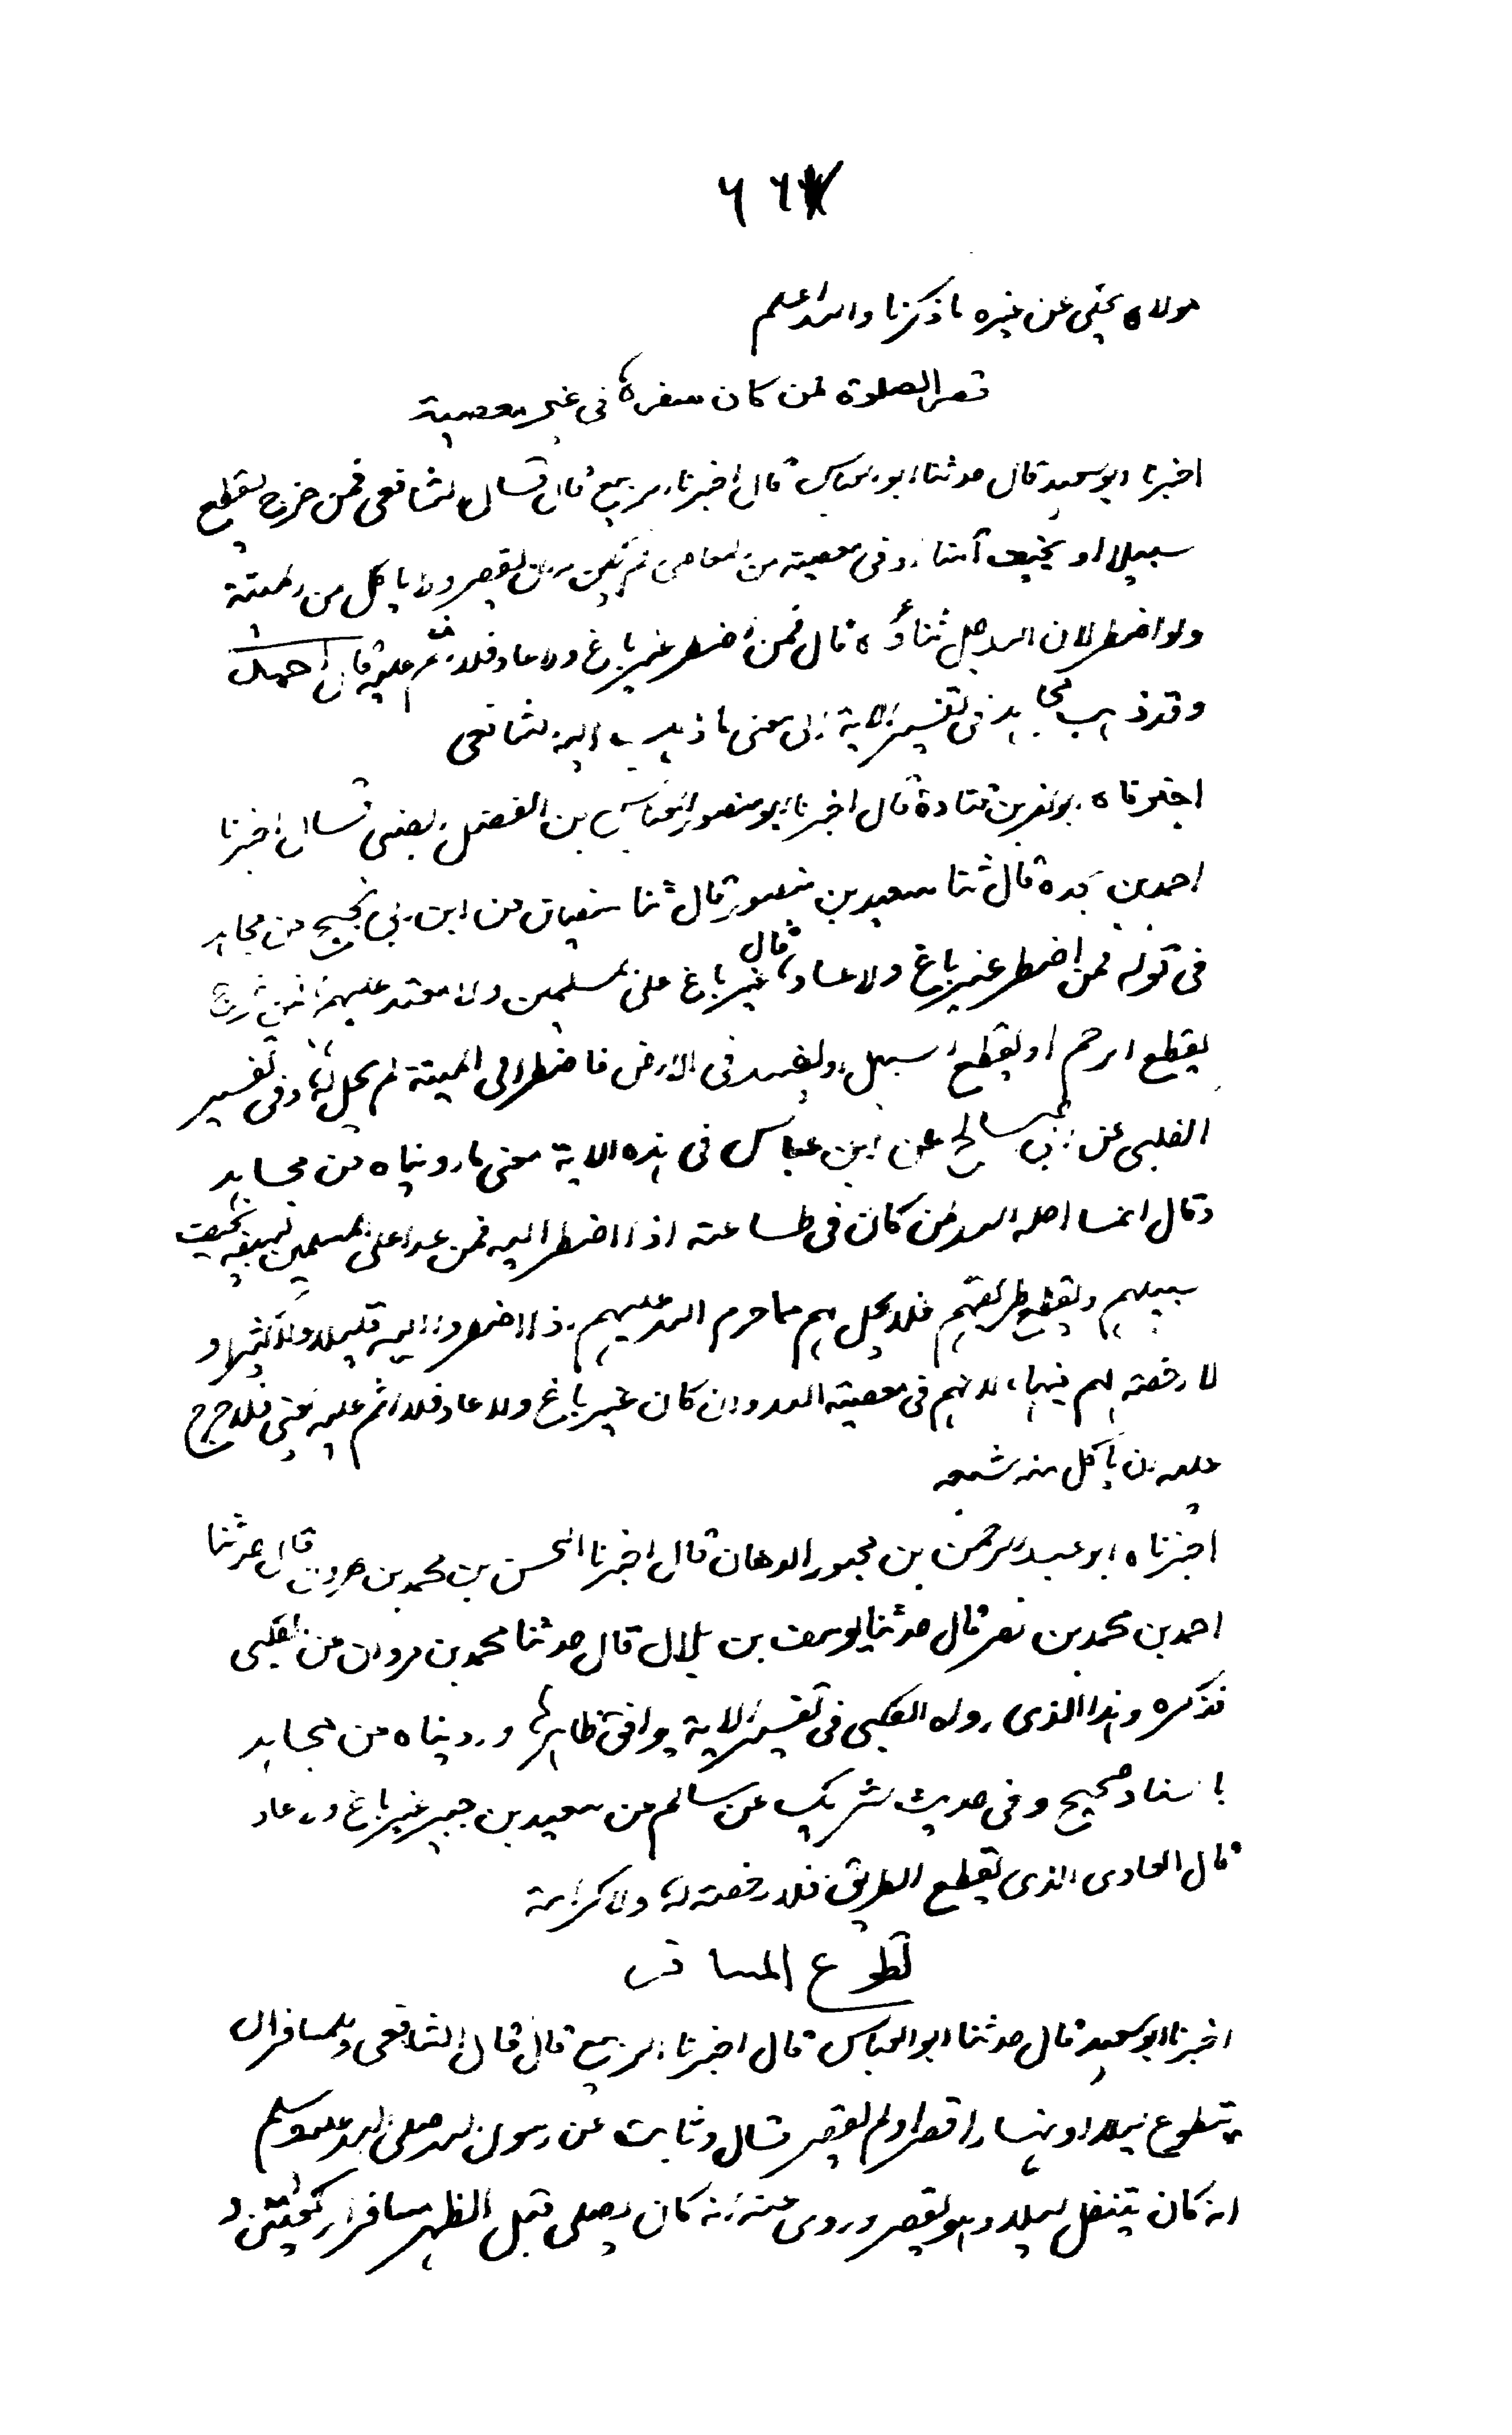 ٦٦
هولاه يحيى عن غيره ما ذكرنا والله اعلم
قصر الصلوة لمن كان سفره في غير معصية
اخبرنا ابو سعيد قال حدثنا ابو العباس قال اخبرنا الربيع قال قال الشافعي فمن خرج يقطع
سبيلا او يخيف آمنا او في معصية من المعاصي لم يكن له ان يقصر ولا ياكل من الميتة
ولو اضطر لان الله جل ثناؤه قال فمن اضطر غير باغ ولا عاد فلا اثم عليه قال احمد
وقد ذهب مجاهد في تفسير الاية الى معنى ما ذهب اليه الشافعي
اخبرناه ابو نصر بن قتادة قال اخبرنا ابو منصور العباس بن الفضل الضبي قال اخبرنا
احمد بن نجدة قال ثنا سعيد بن منصور قال ثنا سفيان عن ابن ابي نجيح عن مجاهد
في قوله فمن اضطر غير باغ ولا عاد قال غير باغ على المسلمين ولا معتد عليهم فمن خرج
يقطع الرحم او يقطع السبيل او يفسد في الارض فاضطر الى الميتة لم يحل له وفي تفسير
الكلبي عن ابي صالح عن ابن عباس في هذه الاية معنى ما رويناه عن مجاهد
وقال انما احله الله لمن كان في طاعته اذا اضطر اليه فمن عدا على المسلمين بسيفه يخيف
سبيلهم ويقطع طريقهم فلا يحل لهم مما حرم الله عليهم اذا اضطروا اليه قليلا ولا كثيرا و
لا رخصة لهم فيها لانهم في معصية الله وان كان غير باغ ولا عاد فلا اثم عليه يعني فلا حرج
عليه ان ياكل منه شبعه
اخبرناه ابو عبد الرحمن بن محبور الدهان قال اخبرنا الحسن بن محمد بن هرون قال حدثنا
احمد بن محمد بن نصر قال حدثنا يوسف بن بلال قال حدثنا محمد بن مروان عن الكلبي
فذكره وهذا الذي رواه الكلبي في تفسير الاية يوافق ظاهرها ورويناه عن مجاهد
باسناد صحيح وفي حديث شريك عن سالم عن سعيد بن جبير غير باغ ولا عاد
قال العادي الذي يقطع الطريق فلا رخصة له ولا كرامة
تطوع المسافر
اخبرنا ابو سعيد قال حدثنا ابو العباس قال اخبرنا الربيع قال قال الشافعي وللمسافر ان
يتطوع ليلا او نهارا قصر او لم يقصر قال وثابت عن رسول الله صلى الله عليه وسلم
انه كان يتنفل ليلا وهو يقصر وروى عنه انه كان يصلي قبل الظهر مسافرا ركعتين و